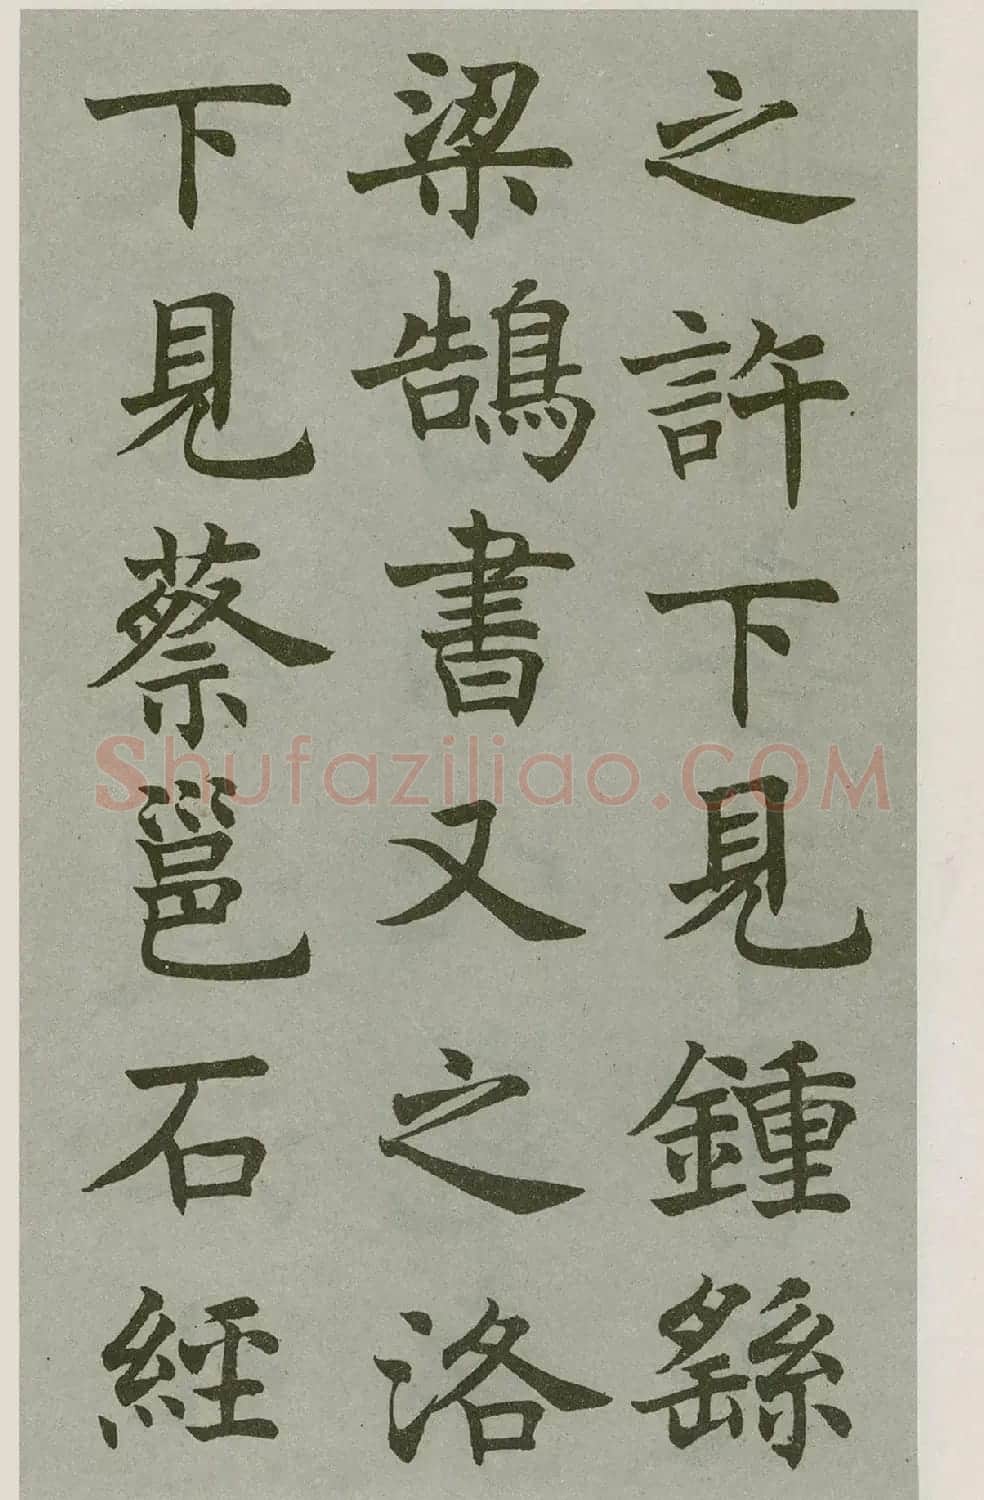 之許下見鍾繇
梁鵠書又之洛
下見蔡邕石經
Shufaziliao.COM